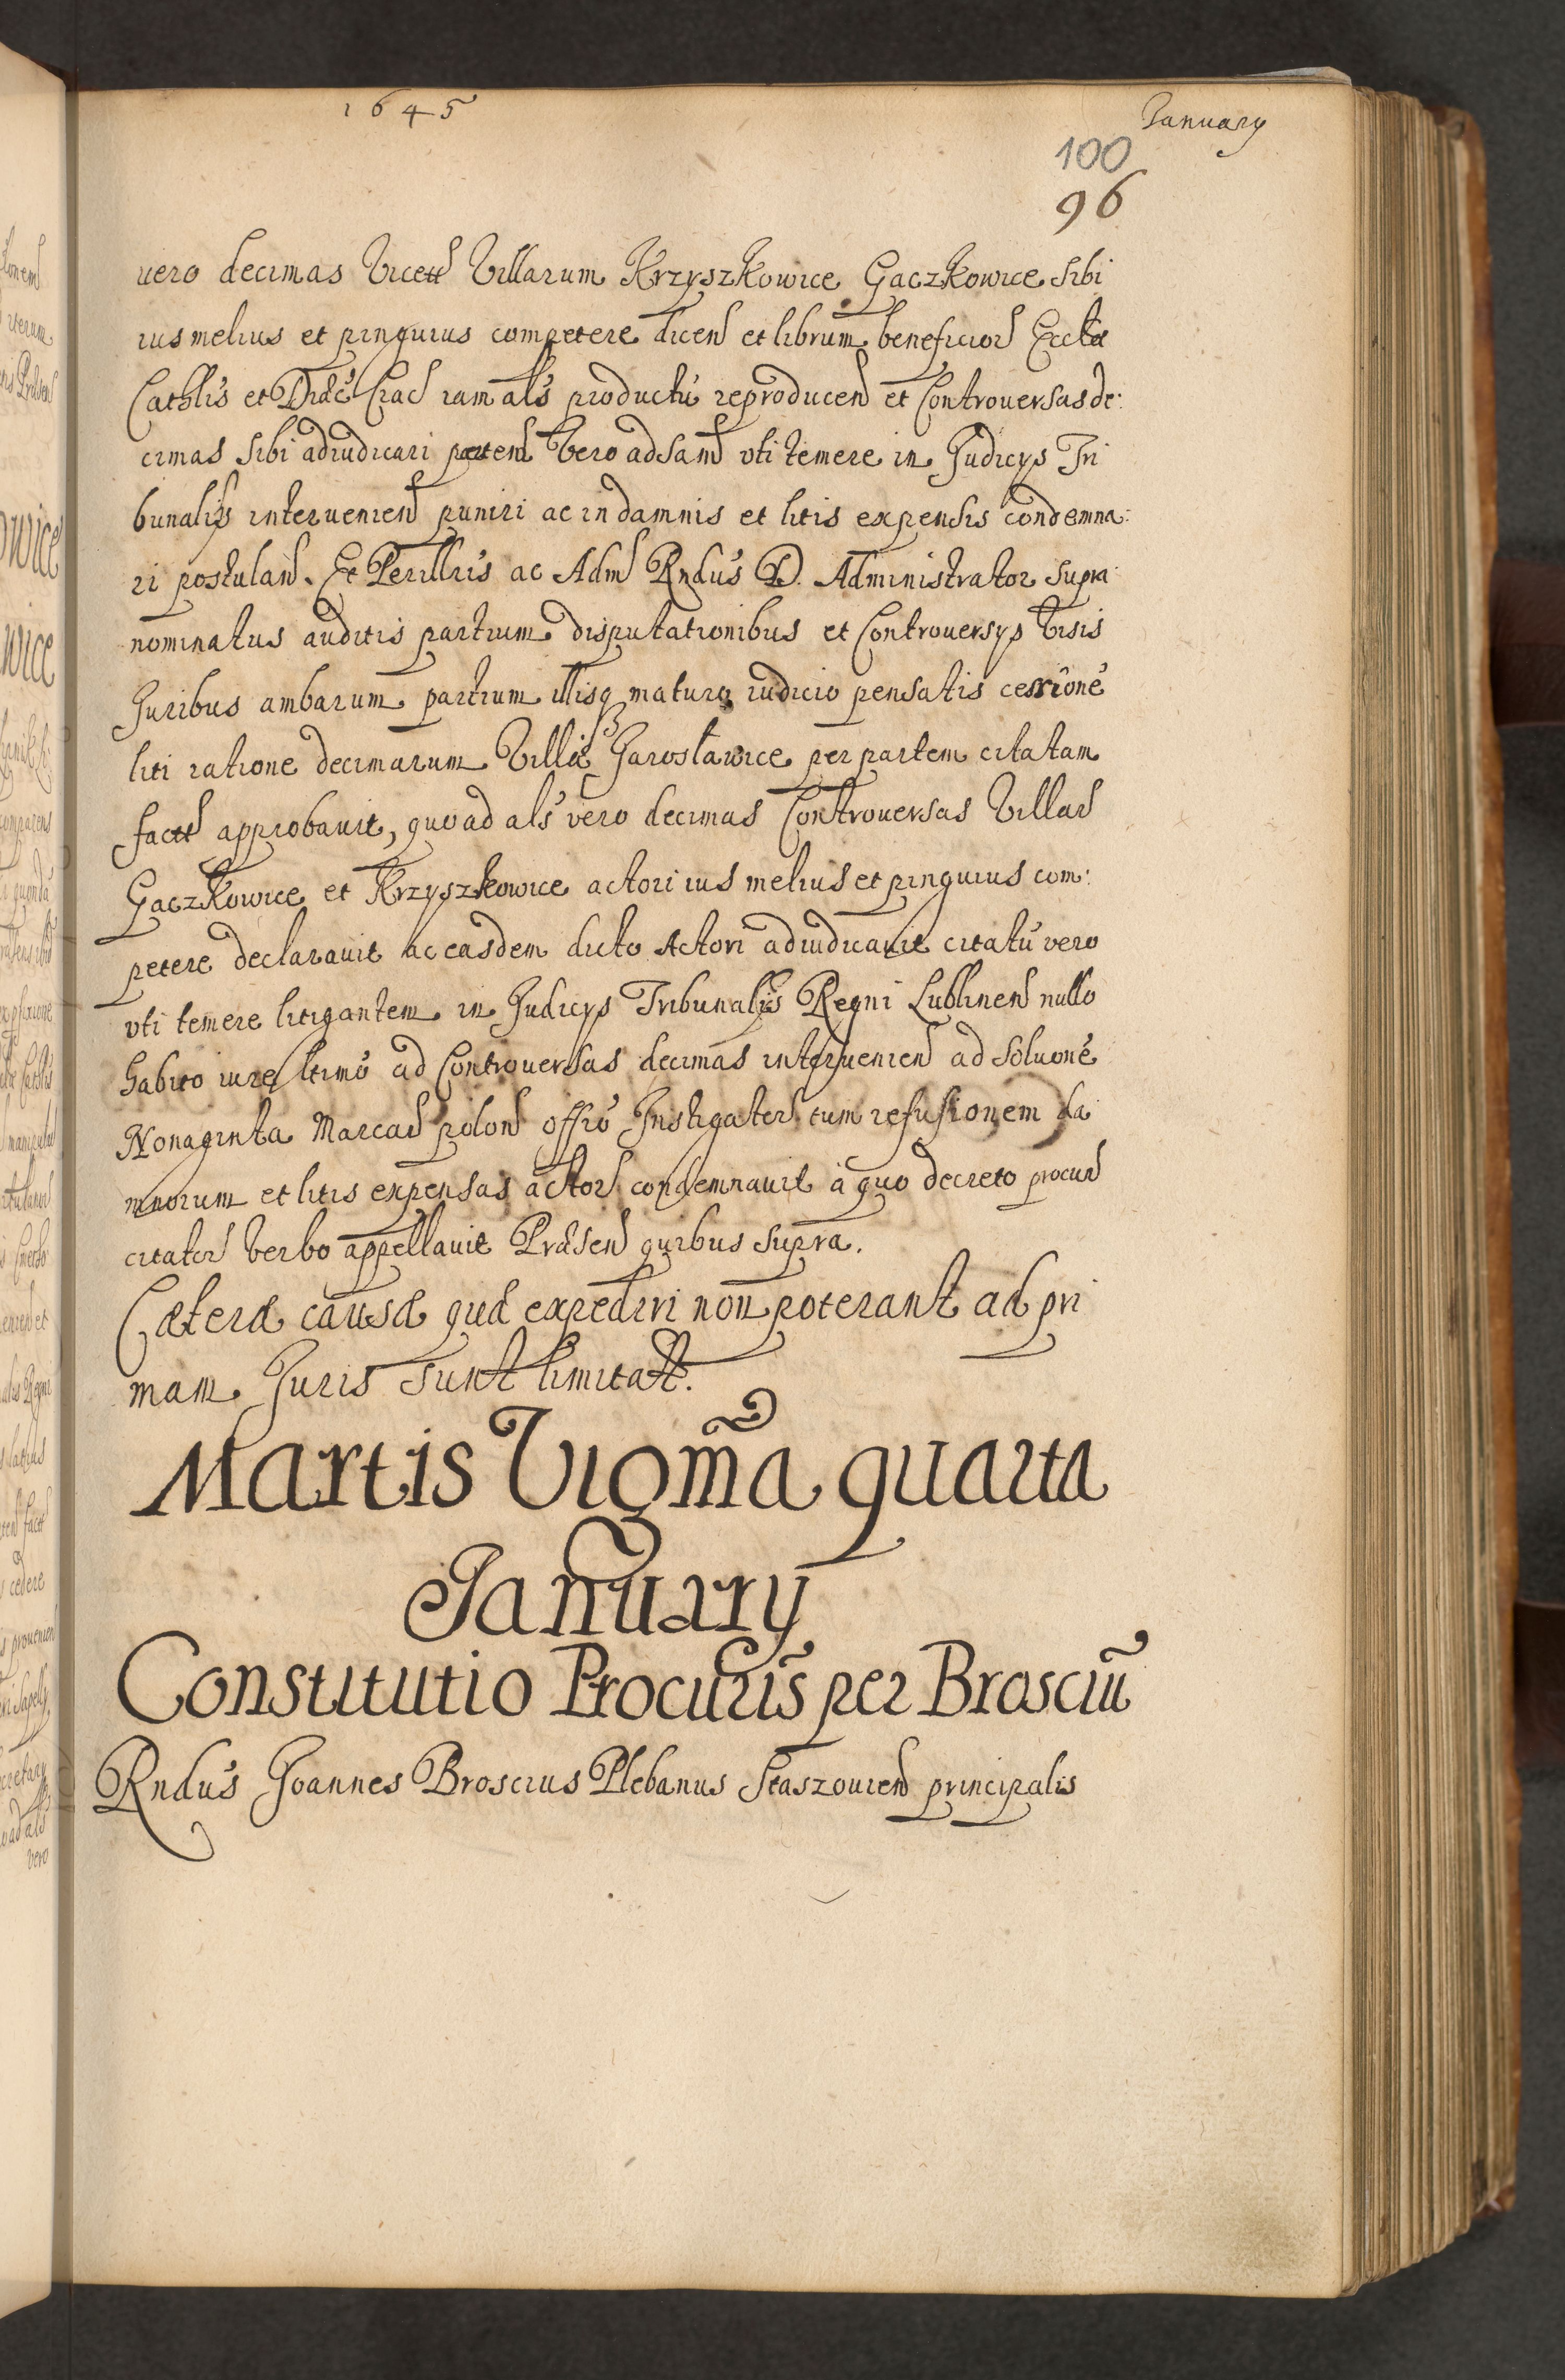 1645
January
100
96
vero decimas Vicett Villarum Krzyszkowice Gaczkowice sibi
ius melius et pinguius competere dicen et librum beneficior Eccłæ
Cathlis et Diæc Crac iam als productu reproducen et Controversas de:
cimas sibi adiudicari partem vero adsam vti temere in Judicys Tri
bunalis intervenien puniri ac in damnis et litis expensis condemna:
ri postulan. Et Perillris ac Adm Rndus D. Administrator supra
nominatus auditis partium disputationibus et Controversys Visis
Juribus ambarum partium illisq maturo iudicio pensatis cessione
liti ratione decimarum Villæ Jarosławice per partem citatam
factt approbavit, quoad als vero decimas Controversas Villar
Gaczkowice et Krzyszkowice actori ius melius et pinguius com:
petere declaravit ac easdem dicto Actori adiudicavit citatu vero
vti temere litigantem in Judicys Tribunalis Regni Lublinen nullo
habito iure ltimo ad Controversas decimas intervenien ad soluone
Nonaginta Marcar polon offio Instigator tum refusionem da
mnorum et litis expensas actor condemnavit à quo decreto procur
citator verbo appellavit Præsen quibus supra.
Cæteræ causæ quæ expediri non poterant ad pri
mam Juris sunt limitatt.
Martis Vigma quarta
January
Constitutio Procuris per Brosciu
Rndus Joannes Broscius Plebanus Staszovien principalis